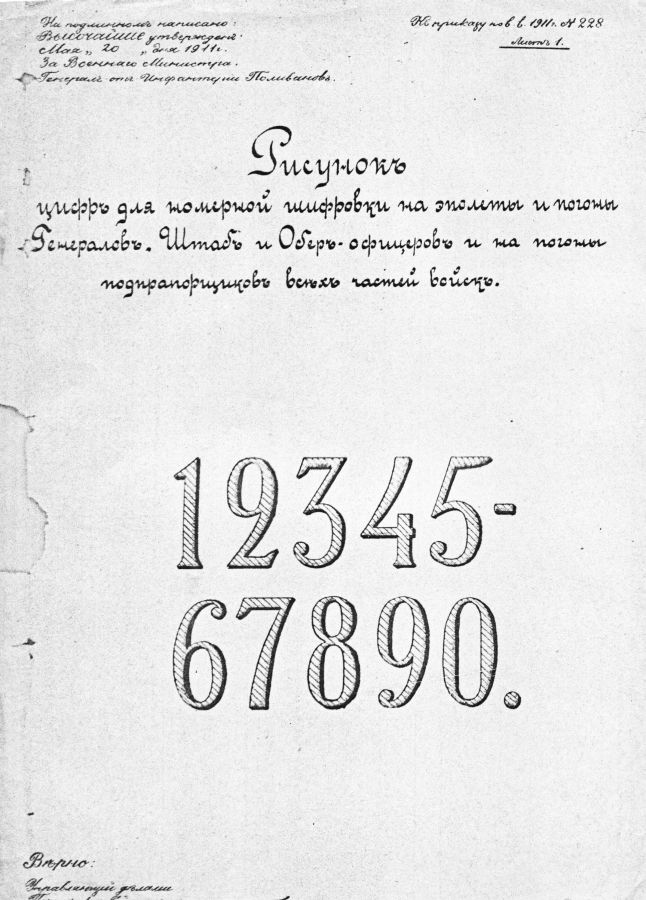 На подлинномъ написано:
Высочайше утвержденъ
Мая „ 20 „ дня 1911 г.
За Военнаго Министра.
Генералъ отъ Инфантеріи Поливановъ.
Къ приказу по в. в. 1911 г. № 228
Листъ 1.
Рисунокъ
цифръ для номерной шифровки на эполеты и погоны
Генераловъ, Штабъ и Оберъ-офицеровъ и на погоны
подпрапорщиковъ всѣхъ частей войскъ.
12345-
67890.
Вѣрно:
Управляющій дѣлами